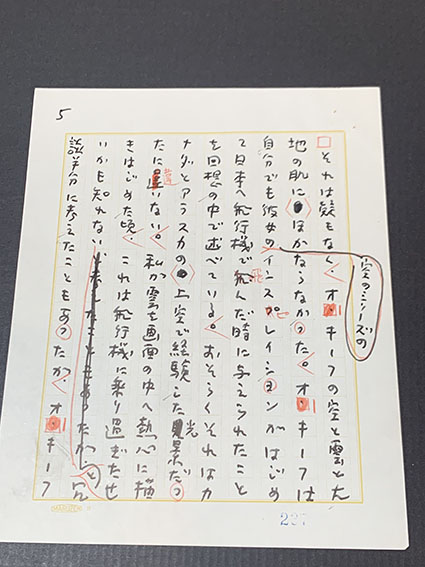 5
それは疑もなく、オ・キーフの空と雲と大
地の肌にほかならなかった。オ・キーフは
空のシリーズの
自分でも彼女のインスピレイションがはじめ
て日本へ飛行機で飛んだ時に与えられたこと
飛
ピ
を回想の中で述べている。おそらくそれはカ
ナダとアラスカの上空で経験した光景だっ
たに違いない。私が雲を画面の中へ熱心に描
きはじめた頃、これは飛行機に乗り過ぎたせ
いかも知れないと冗
談半分に考えたこともあったが、オ・キーフ
237